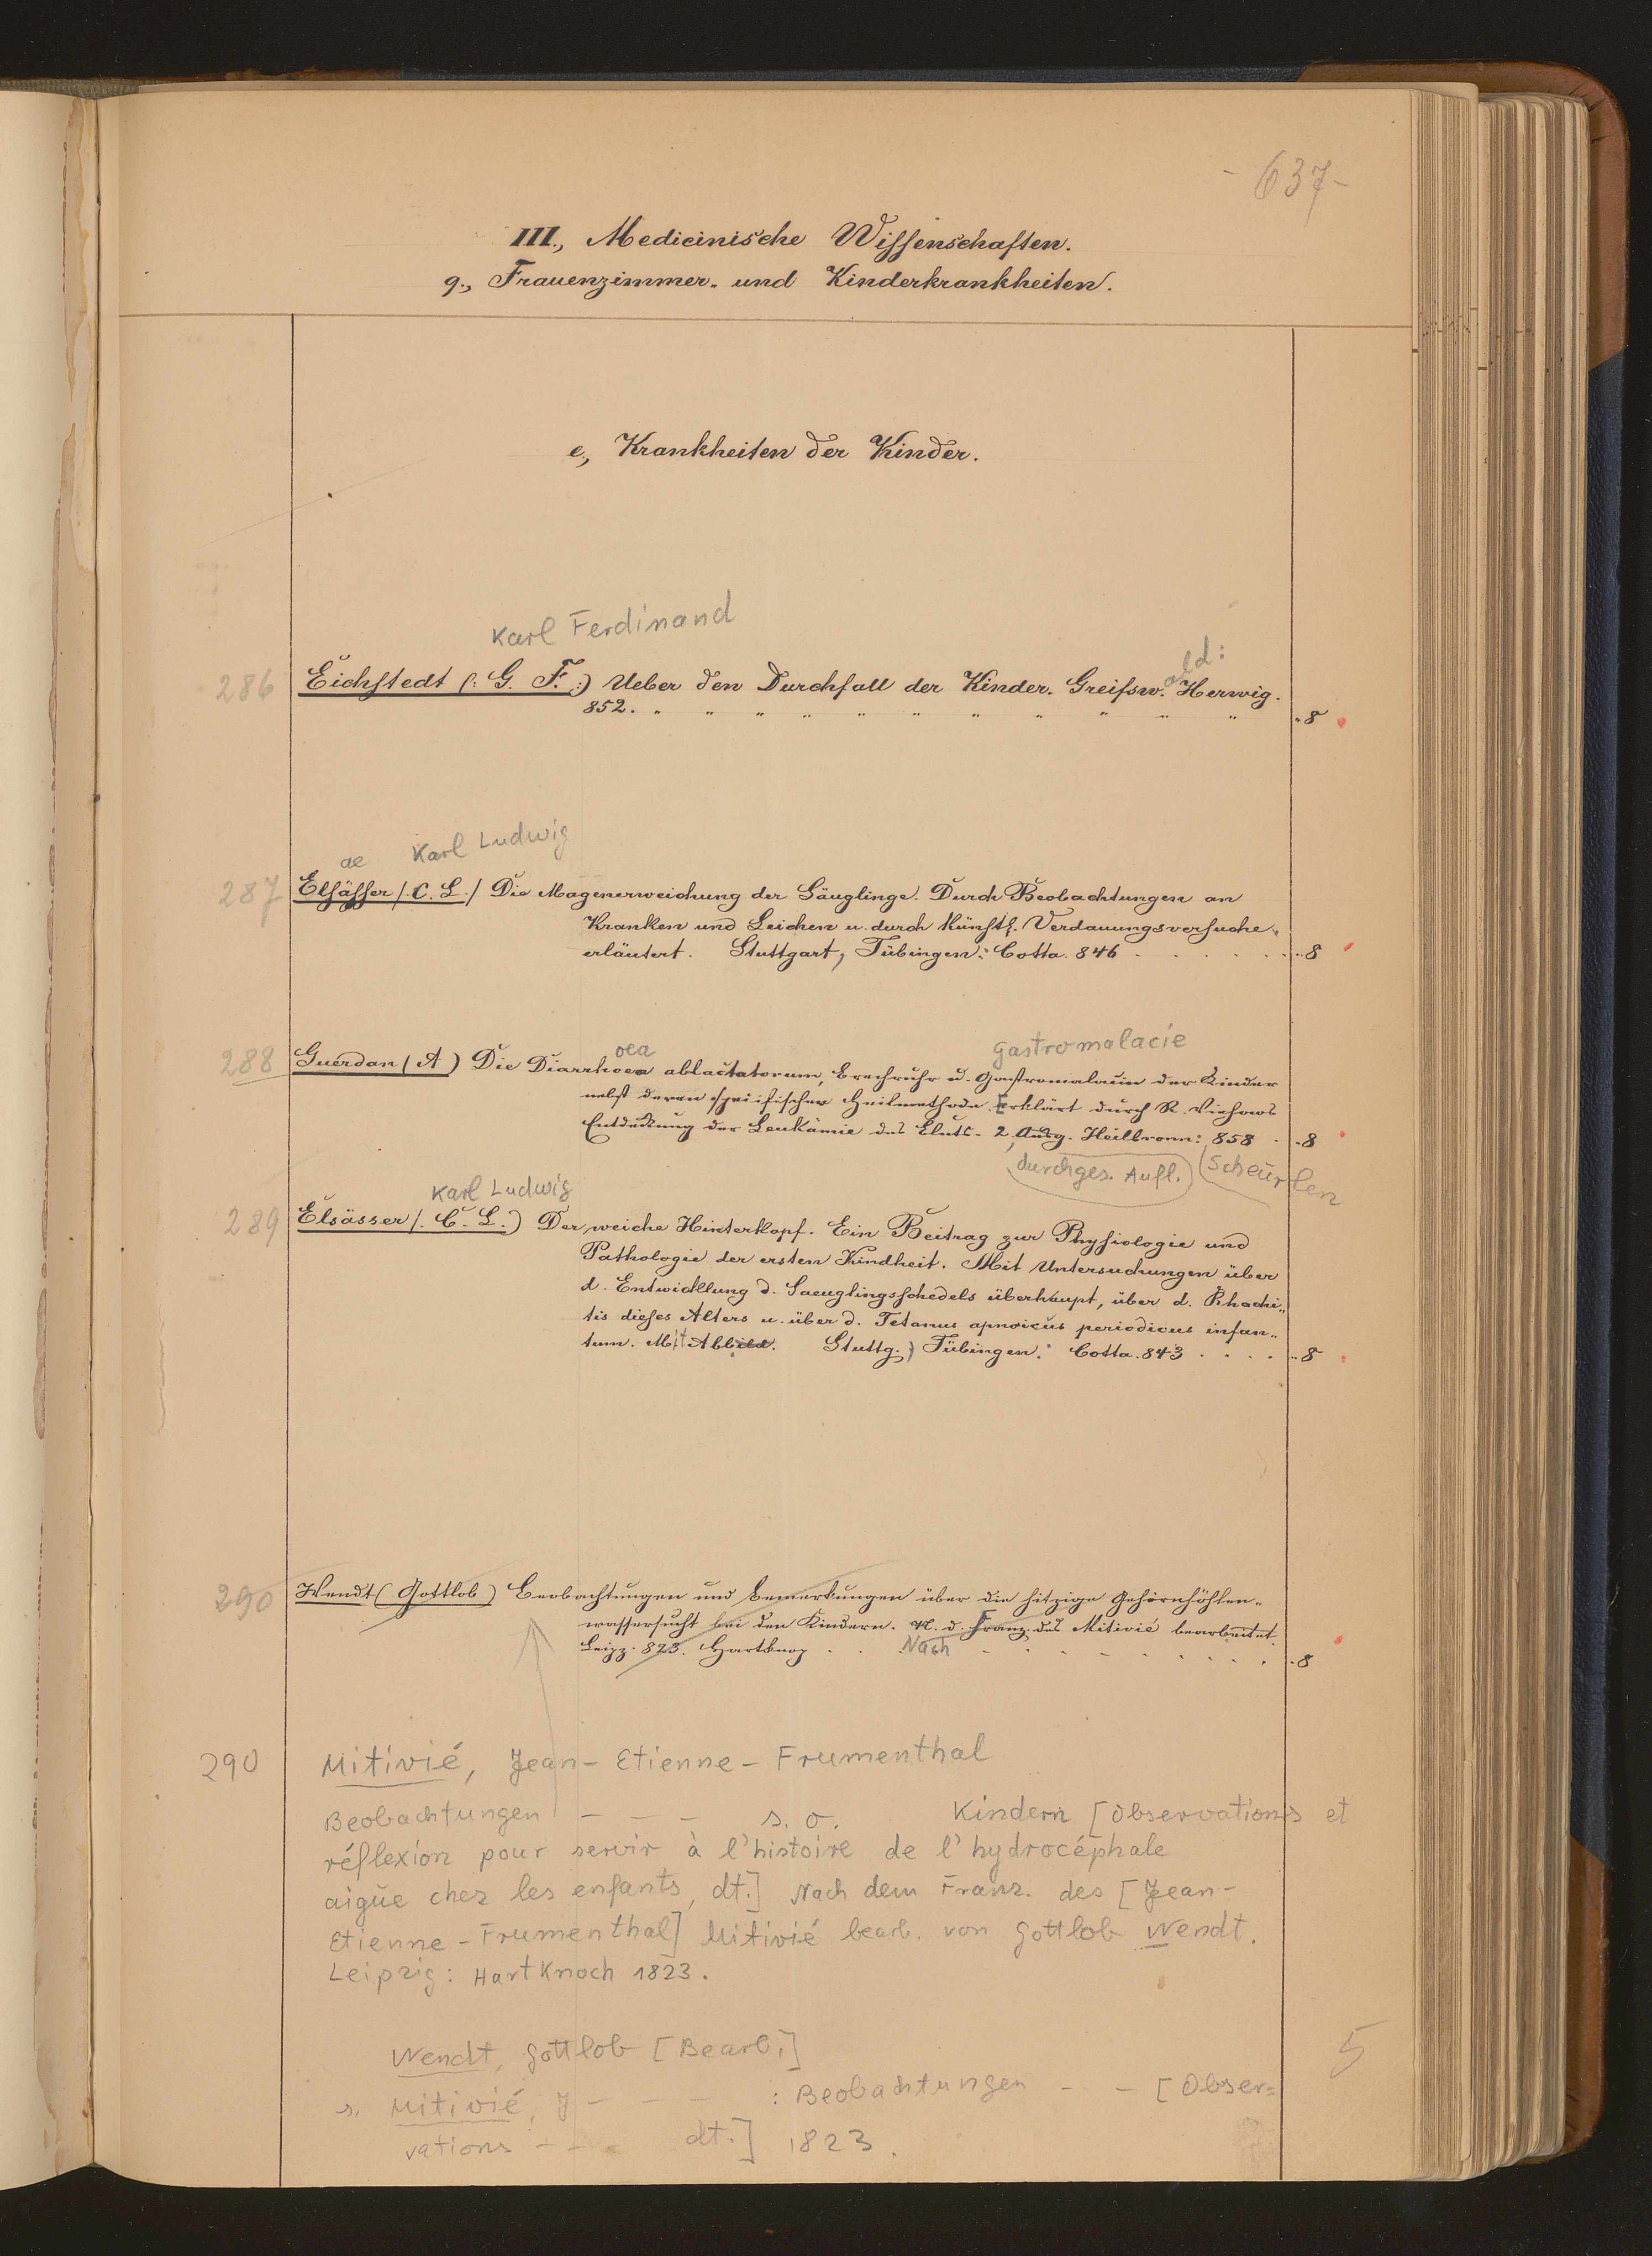 - 637 -
III., Medicinische Wissenschaften.
g., Frauenzimmer- und Kinderkrankheiten.
e., Krankheiten der Kinder.
Karl Ferdinand
286 Eichstedt (: G. F. :) Ueber den Durchfall der Kinder. Greifsw. ald: Herwig.
852. " " " " " " " " " " " " 8
ae Karl Ludwig
287 Elsässer (. C. L.) Die Magenerweichung der Säuglinge. Durch Beobachtungen an
Kranken und Leichen u. durch künstl. Verdauungsversuche
erläutert. Stuttgart, Tübingen: Cotta. 846 . . . . . . 8
oea gastromalacie
288 Guerdan (A) Die Diarrhoea ablactatorum, Brechruhr u. Gastromalacie der Kinder
nebst deren specifischer Heilmethode. Erklärt durch R. Virchows
Entdeckung der Leukämie des Bluts. 2, Ausg. Heilbronn: 858 . 8
durchges. Aufl. Scheurlen
Karl Ludwig
289 Elsässer (. C. L.) Der weiche Hinterkopf. Ein Beitrag zur Physiologie und
Pathologie der ersten Kindheit. Mit Untersuchungen über
d. Entwicklung d. Saeuglingsschedels überhaupt, über d. Rhachi„
tis dieses Alters u. über d. Tetanus apnoicus periodicus infan„
tum. Mit Abbild. Stuttg., Tübingen: Cotta. 843 . . . . 8
290 Wendt (Gottlob) Beobachtungen und Bemerkungen über die hitzige Gehirnhöhlen„
wassersucht bei den Kindern. N. d. Franz. des Mitivié bearbeitet.
Leipz. 823. Hartknop . . Nach . . . . . . . . 8
290 Mitivié, Jean-Etienne-Frumenthal
Beobachtungen - - - s. o. Kindern [Observations et
réflexion pour servir à l'histoire de l'hydrocéphale
aigüe chez les enfants, dt.] Nach dem Franz. des [Jean-
Etienne-Frumenthal] Mitivié bearb. von Gottlob Wendt.
Leipzig: Hartknoch 1823.
Wendt, Gottlob [Bearb.]
5
s. Mitivié, J - - - : Beobachtungen - - [Obser=
vations - - - dt.] 1823.